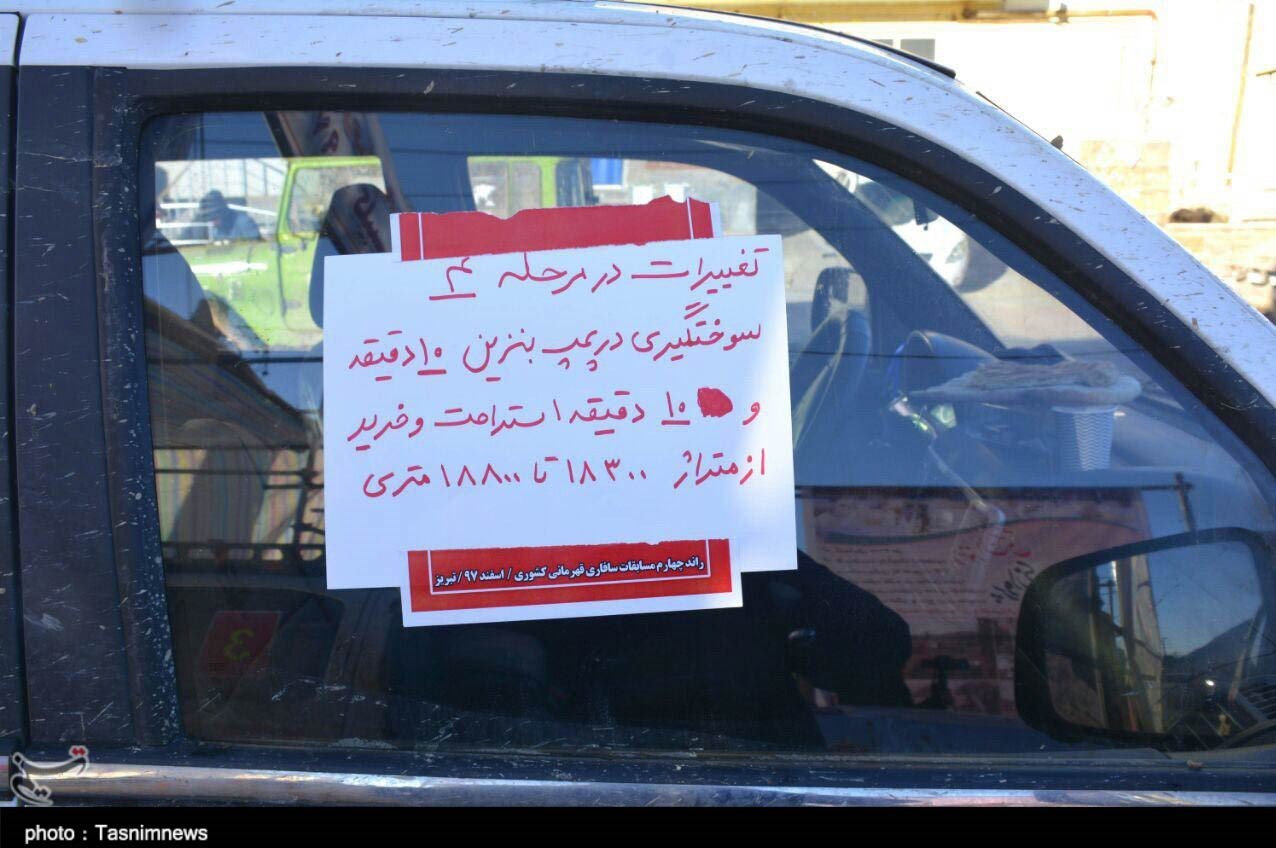 تغییرات در مرحله ۳
سوختگیری در پمپ بنزین ۱۰ دقیقه
و ۱۰ دقیقه استراحت و خرید
از متراژ ۱۸۳۰۰ تا ۱۸۸۰۰ متری
راند چهارم مسابقات سافاری قهرمانی کشوری / اسفند ۹۷ / تبریز
تسنیم
photo : Tasnimnews